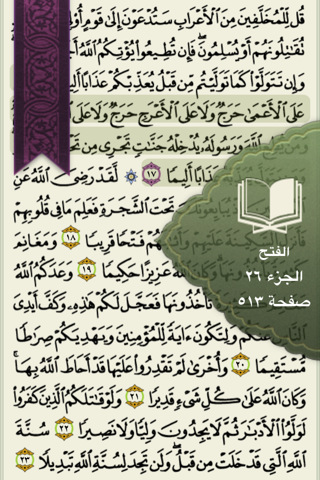 قُل لِّلْمُخَلَّفِينَ مِنَ ٱلْأَعْرَابِ سَتُدْعَوْنَ إِلَىٰ قَوْمٍ
تُقَٰتِلُونَهُمْ أَوْ يُسْلِمُونَ ۖ فَإِن تُطِيعُوا۟ يُؤْتِكُمُ ٱللَّهُ
وَإِن تَتَوَلَّوْا۟ كَمَا تَوَلَّيْتُم مِّن قَبْلُ يُعَذِّبْكُمْ عَذَابًا
عَلَى ٱلْأَعْمَىٰ حَرَجٌ وَلَا عَلَى ٱلْأَعْرَجِ حَرَجٌ وَلَا عَلَى
ٱللَّهَ وَرَسُولَهُۥ يُدْخِلْهُ جَنَّٰتٍ تَجْرِى مِن
عَذَابًا أَلِيمًا ١٧ لَّقَدْ رَضِىَ ٱللَّهُ عَنِ
يُبَايِعُونَكَ تَحْتَ ٱلشَّجَرَةِ فَعَلِمَ مَا فِى قُلُوبِهِمْ
ٱلسَّكِينَةَ عَلَيْهِمْ فَتْحًا قَرِيبًا ١٨ وَمَغَانِمَ
ٱللَّهُ عَزِيزًا حَكِيمًا ١٩ وَعَدَكُمُ ٱللَّهُ
تَأْخُذُونَهَا فَعَجَّلَ لَكُمْ هَٰذِهِۦ وَكَفَّ أَيْدِىَ
ٱلنَّاسِ عَنكُمْ وَلِتَكُونَ ءَايَةً لِّلْمُؤْمِنِينَ وَيَهْدِيَكُمْ صِرَٰطًا
مُّسْتَقِيمًا ٢٠ وَأُخْرَىٰ لَمْ تَقْدِرُوا۟ عَلَيْهَا قَدْ أَحَاطَ ٱللَّهُ بِهَا ۚ
وَكَانَ ٱللَّهُ عَلَىٰ كُلِّ شَىْءٍ قَدِيرًا ٢١ وَلَوْ قَٰتَلَكُمُ ٱلَّذِينَ كَفَرُوا۟
لَوَلَّوُا۟ ٱلْأَدْبَٰرَ ثُمَّ لَا يَجِدُونَ وَلِيًّا وَلَا نَصِيرًا ٢٢ سُنَّةَ
ٱللَّهِ ٱلَّتِى قَدْ خَلَتْ مِن قَبْلُ ۖ وَلَن تَجِدَ لِسُنَّةِ ٱللَّهِ تَبْدِيلًا ٢٣
الفتح
الجزء ٢٦
صفحة ٥١٣